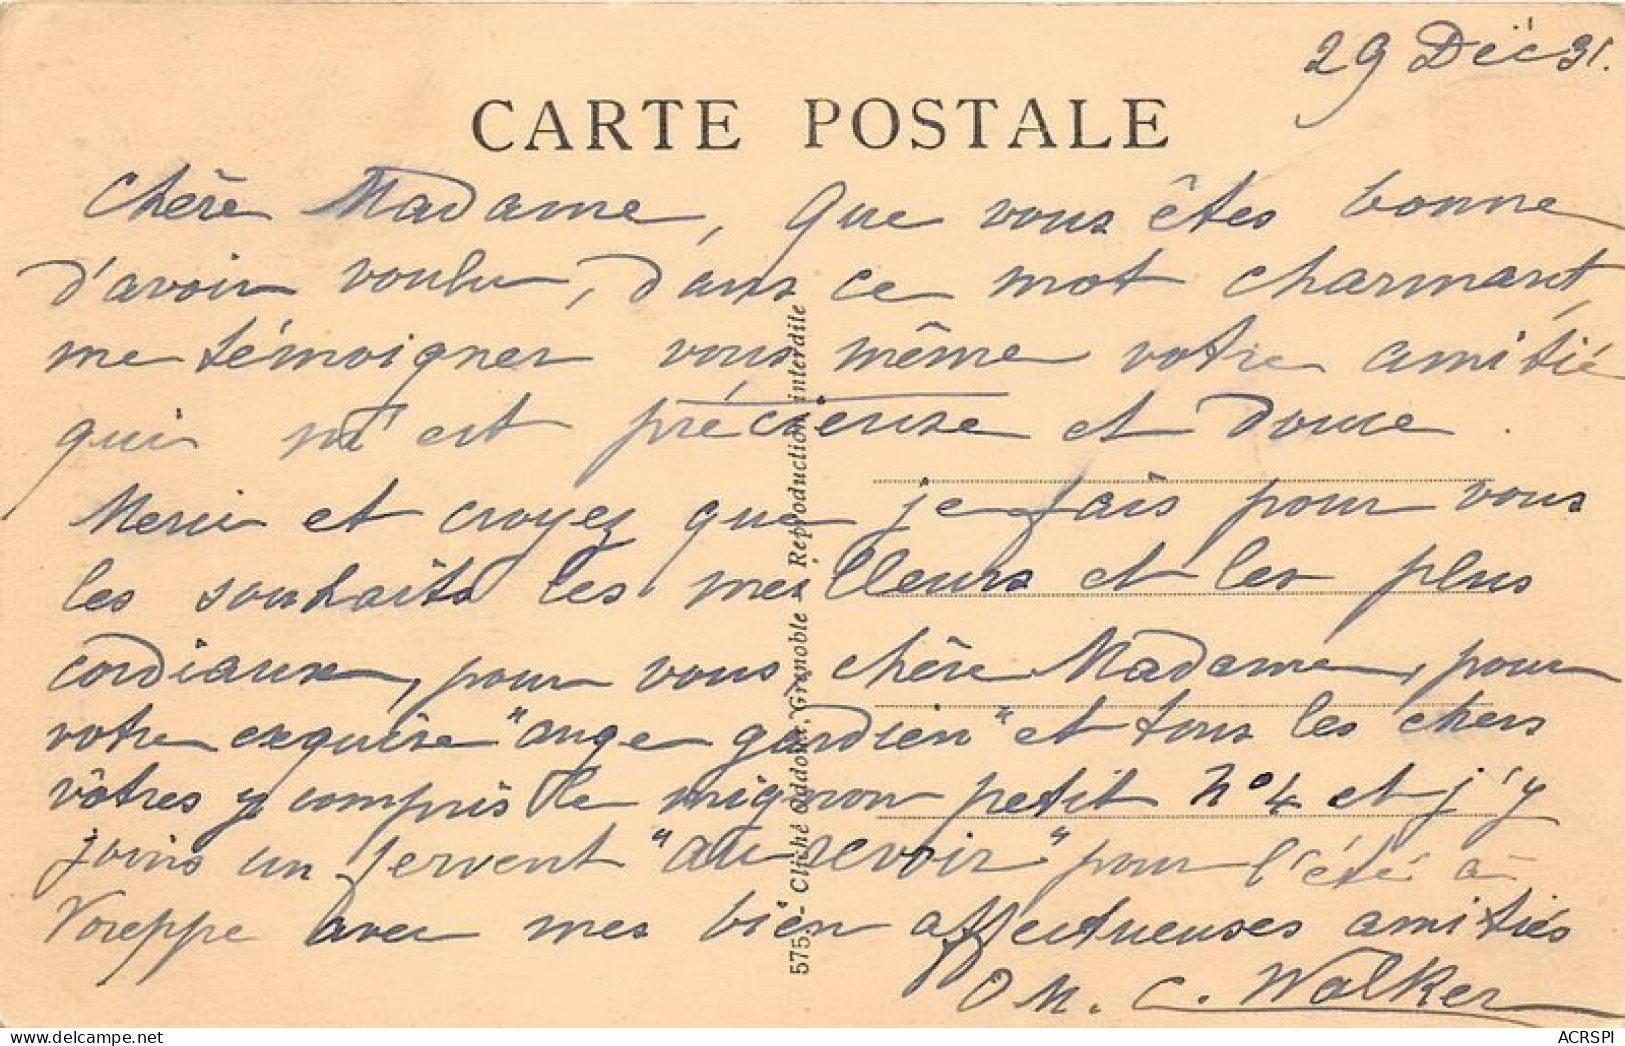 29 Déc 31.
CARTE POSTALE
Chère Madame, que vous êtes bonne
d'avoir voulu, dans ce mot charmant,
me témoigner vous même votre amitié
qui m'est précieuse et douce.
Merci et croyez que je fais pour vous
les souhaits les meilleurs et les plus
cordiaux, pour vous chère Madame, pour
votre exquise "ange gardien" et tous les chers
vôtres y compris le mignon petit No 4 et j'y
joins un fervent "au revoir" pour l'été à
Voreppe avec mes bien affectueuses amitiés
M. C. Walker
575. - Cliché Oddoux, Grenoble - Reproduction interdite
ACRSPI